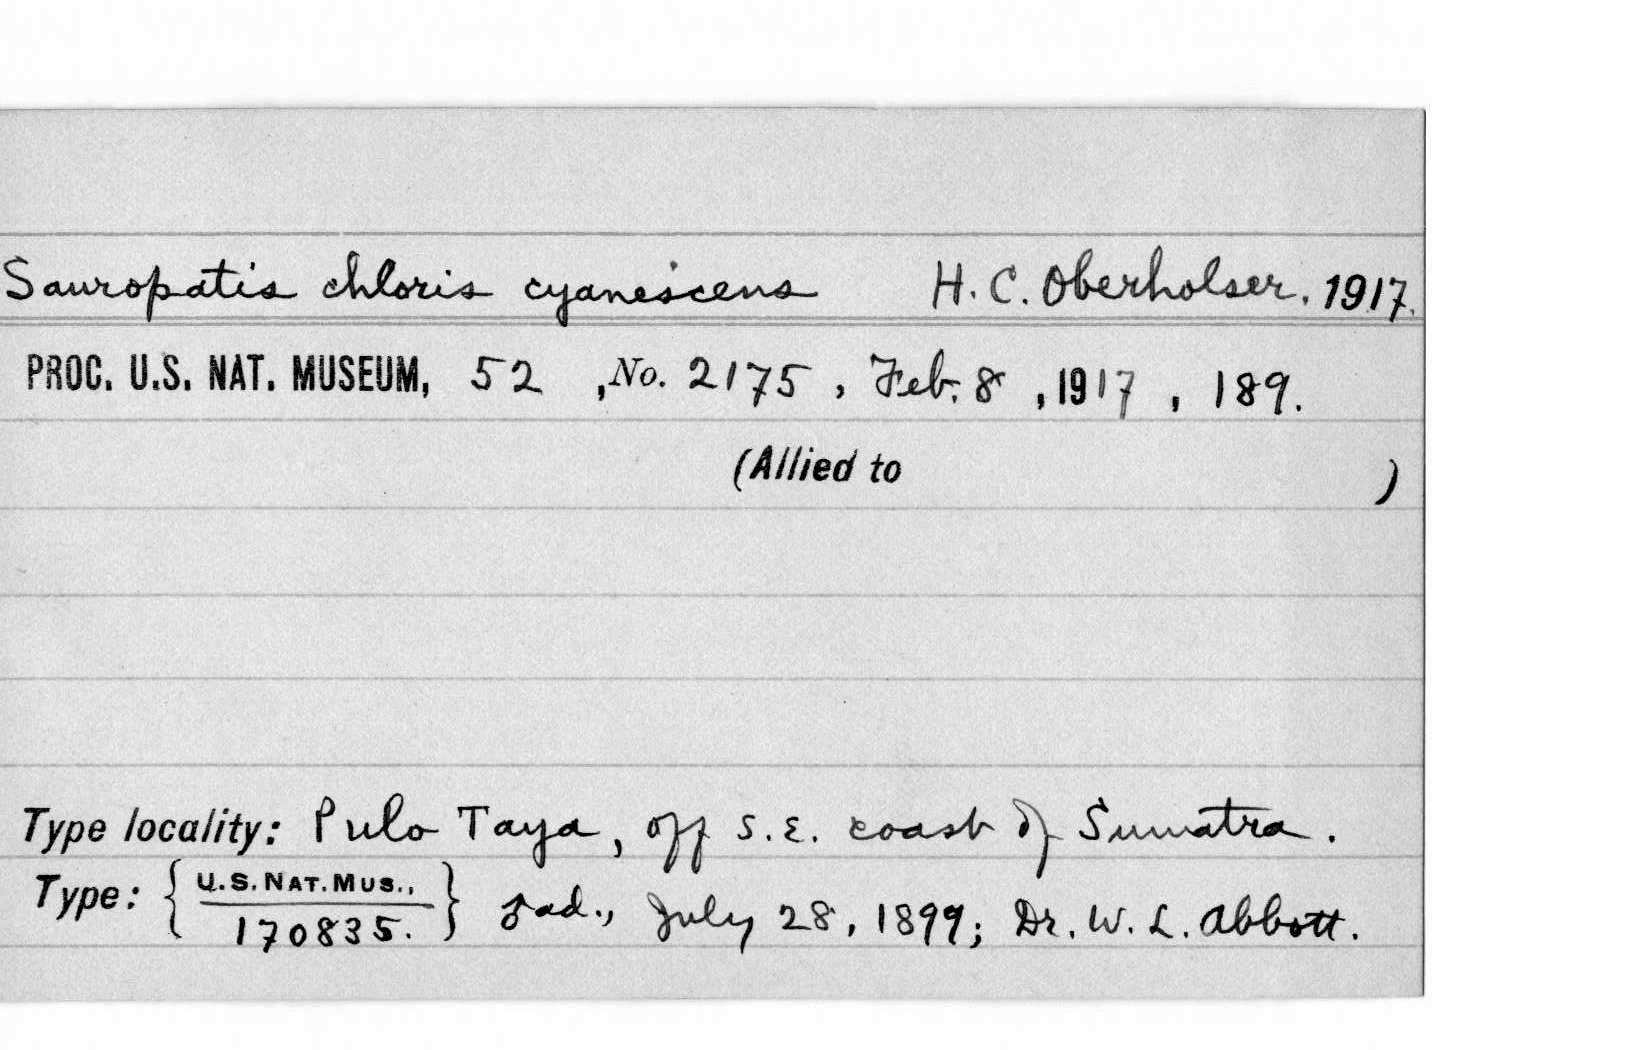 Sauropatis chloris cyanescens H. C. Oberholser. 1917.
PROC. U.S. NAT. MUSEUM, 52, No. 2175, Feb. 8, 1917, 189.
(Allied to )
Type locality: Pulo Taya, off S.E. coast of Sumatra.
Type: { U.S. NAT. MUS., } ad., July 28, 1899; Dr. W. L. Abbott.
170835.